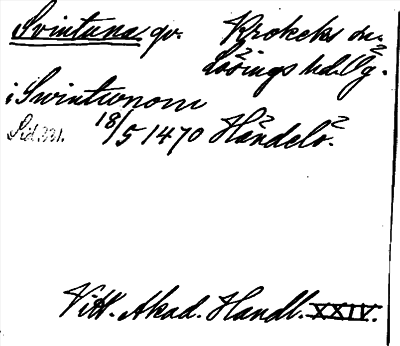 Svintuna, qv. Krokeks sn.
Lösings hd. Ög.
i Swintwnom
Sid. 321. 18/5 1470 Händelö.
Vitt. Akad. Handl. XXIV.